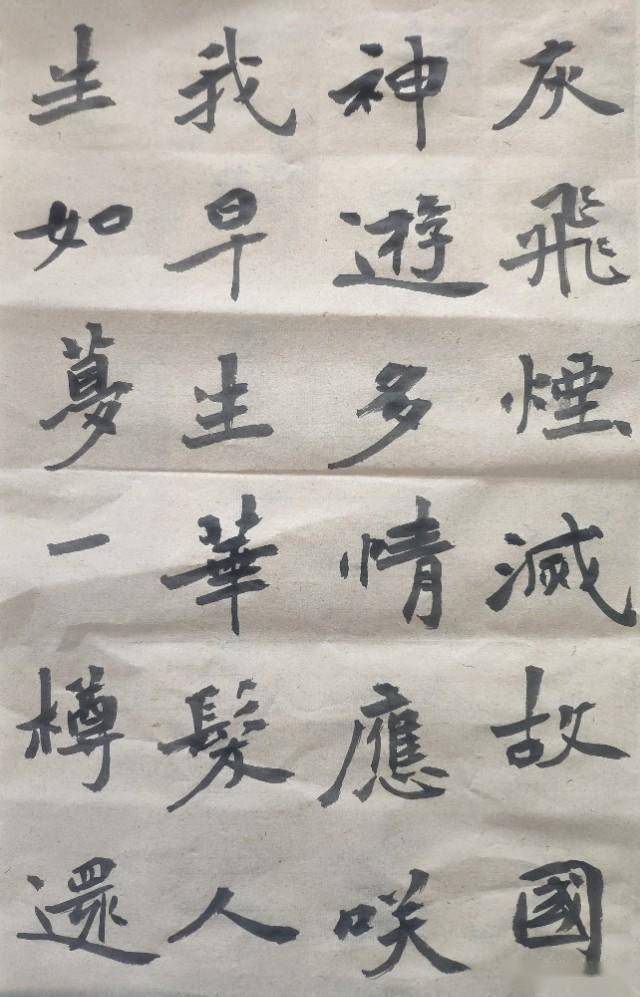 灰飛煙滅故國
神遊多情應咲
我早生華髮人
生如夢一樽還